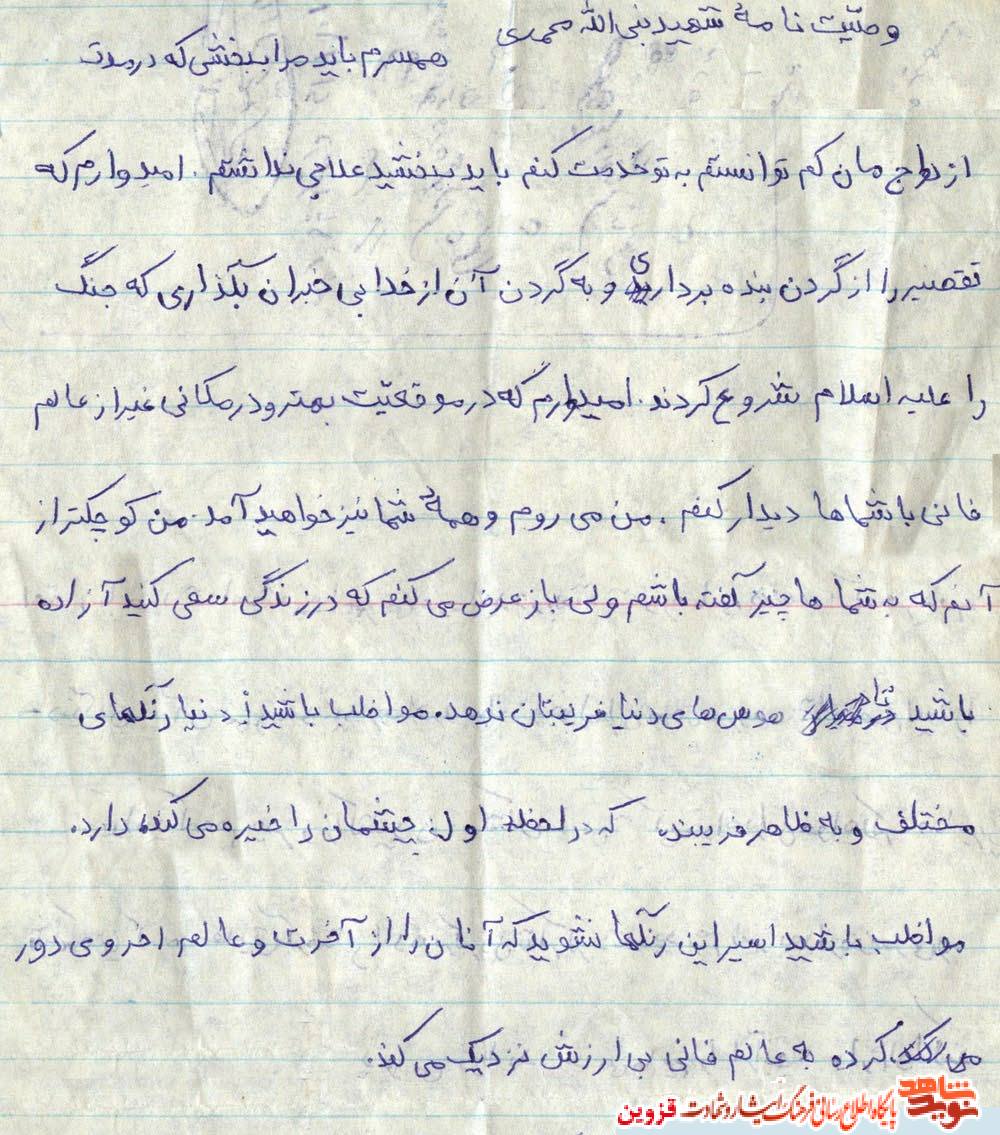 وصیت نامهٔ شهید نبی الله محمدی
همسرم باید مرا ببخشی که در مدت
ازدواج مان کم توانستم به تو خدمت کنم باید ببخشید علاجی نداشتم. امیدوارم که
تقصیر را از گردن بنده برداری و به گردن آن از خدا بی خبران بگذاری که جنگ
را علیه اسلام شروع کردند. امیدوارم که در موقعیت بهتر و در مکانی غیر از عالم
فانی با شماها دیدار کنم. من می روم و همهٔ شما نیز خواهید آمد. من کوچکتر از
آنم که به شما ها چیز گفته باشم ولی باز عرض می کنم که در زندگی سعی کنید آزاده
باشید تا هوس های دنیا فریبتان ندهد. مواظب باشید دنیا رنگهای
مختلف و به ظاهر فریبنده که در لحظه اول چشمان را خیره می کند، دارد.
مواظب باشید اسیر این رنگها نشوید که آنان را از آخرت و عالم اخروی دور
کرده به عالم فانی بی ارزش نزدیک می کند.
نوید شاهد پایگاه اطلاع رسانی فرهنگ ایثار و شهادت قزوین